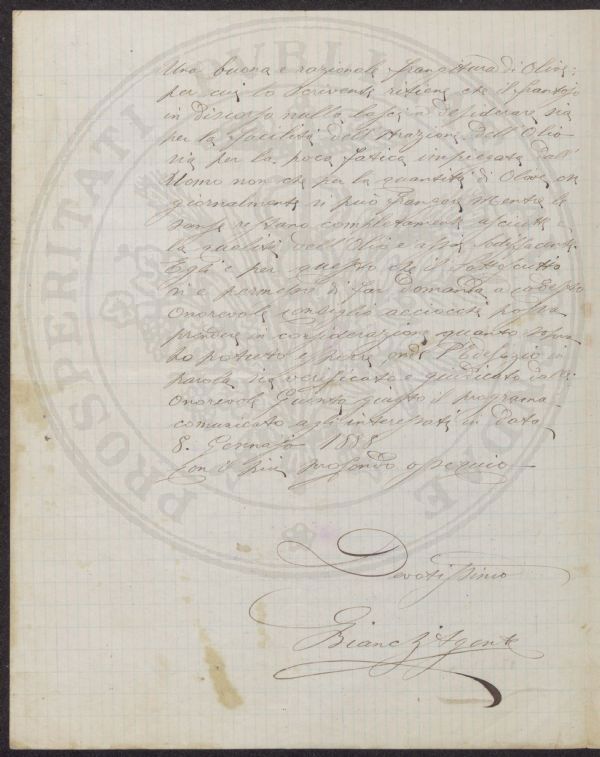 Una buona e razionale frangitura di Olive;
per cui lo Scrivente ritiene che il frantojo
in discorso nulla lascia a desiderare, sia
per la facilità dell'Atrazione dell'Olio
sia per la poca fatica impiegata dall'
Uomo non che per la quantità di Olive che
giornalmente si può frangere mentre le
sanse restano completamente asciutte e
la qualità dell'Olio e assai sodisfacente.
Egli è per questo che il sottoscritto
si e permesso di far domanda a codesto
Onorevole Consiglio acciocchè possa
prendere in considerazione quanto sopra
ho potuto esporre onde l'Edefizio in
parola sia verificato e giudicato dalla
Onorevole Giunta giusto il programa
comunicato agli interessati in data
8. Gennajo 1888
Con il più profondo ossequio
Devotissimo
Agente
PROSPERITATI PUBLICAE